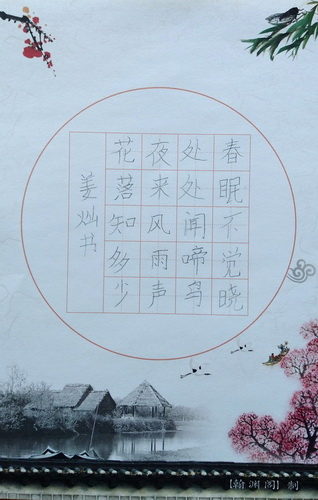 春眠不觉晓
处处闻啼鸟
夜来风雨声
花落知多少
姜灿书
【翰渊阁】制